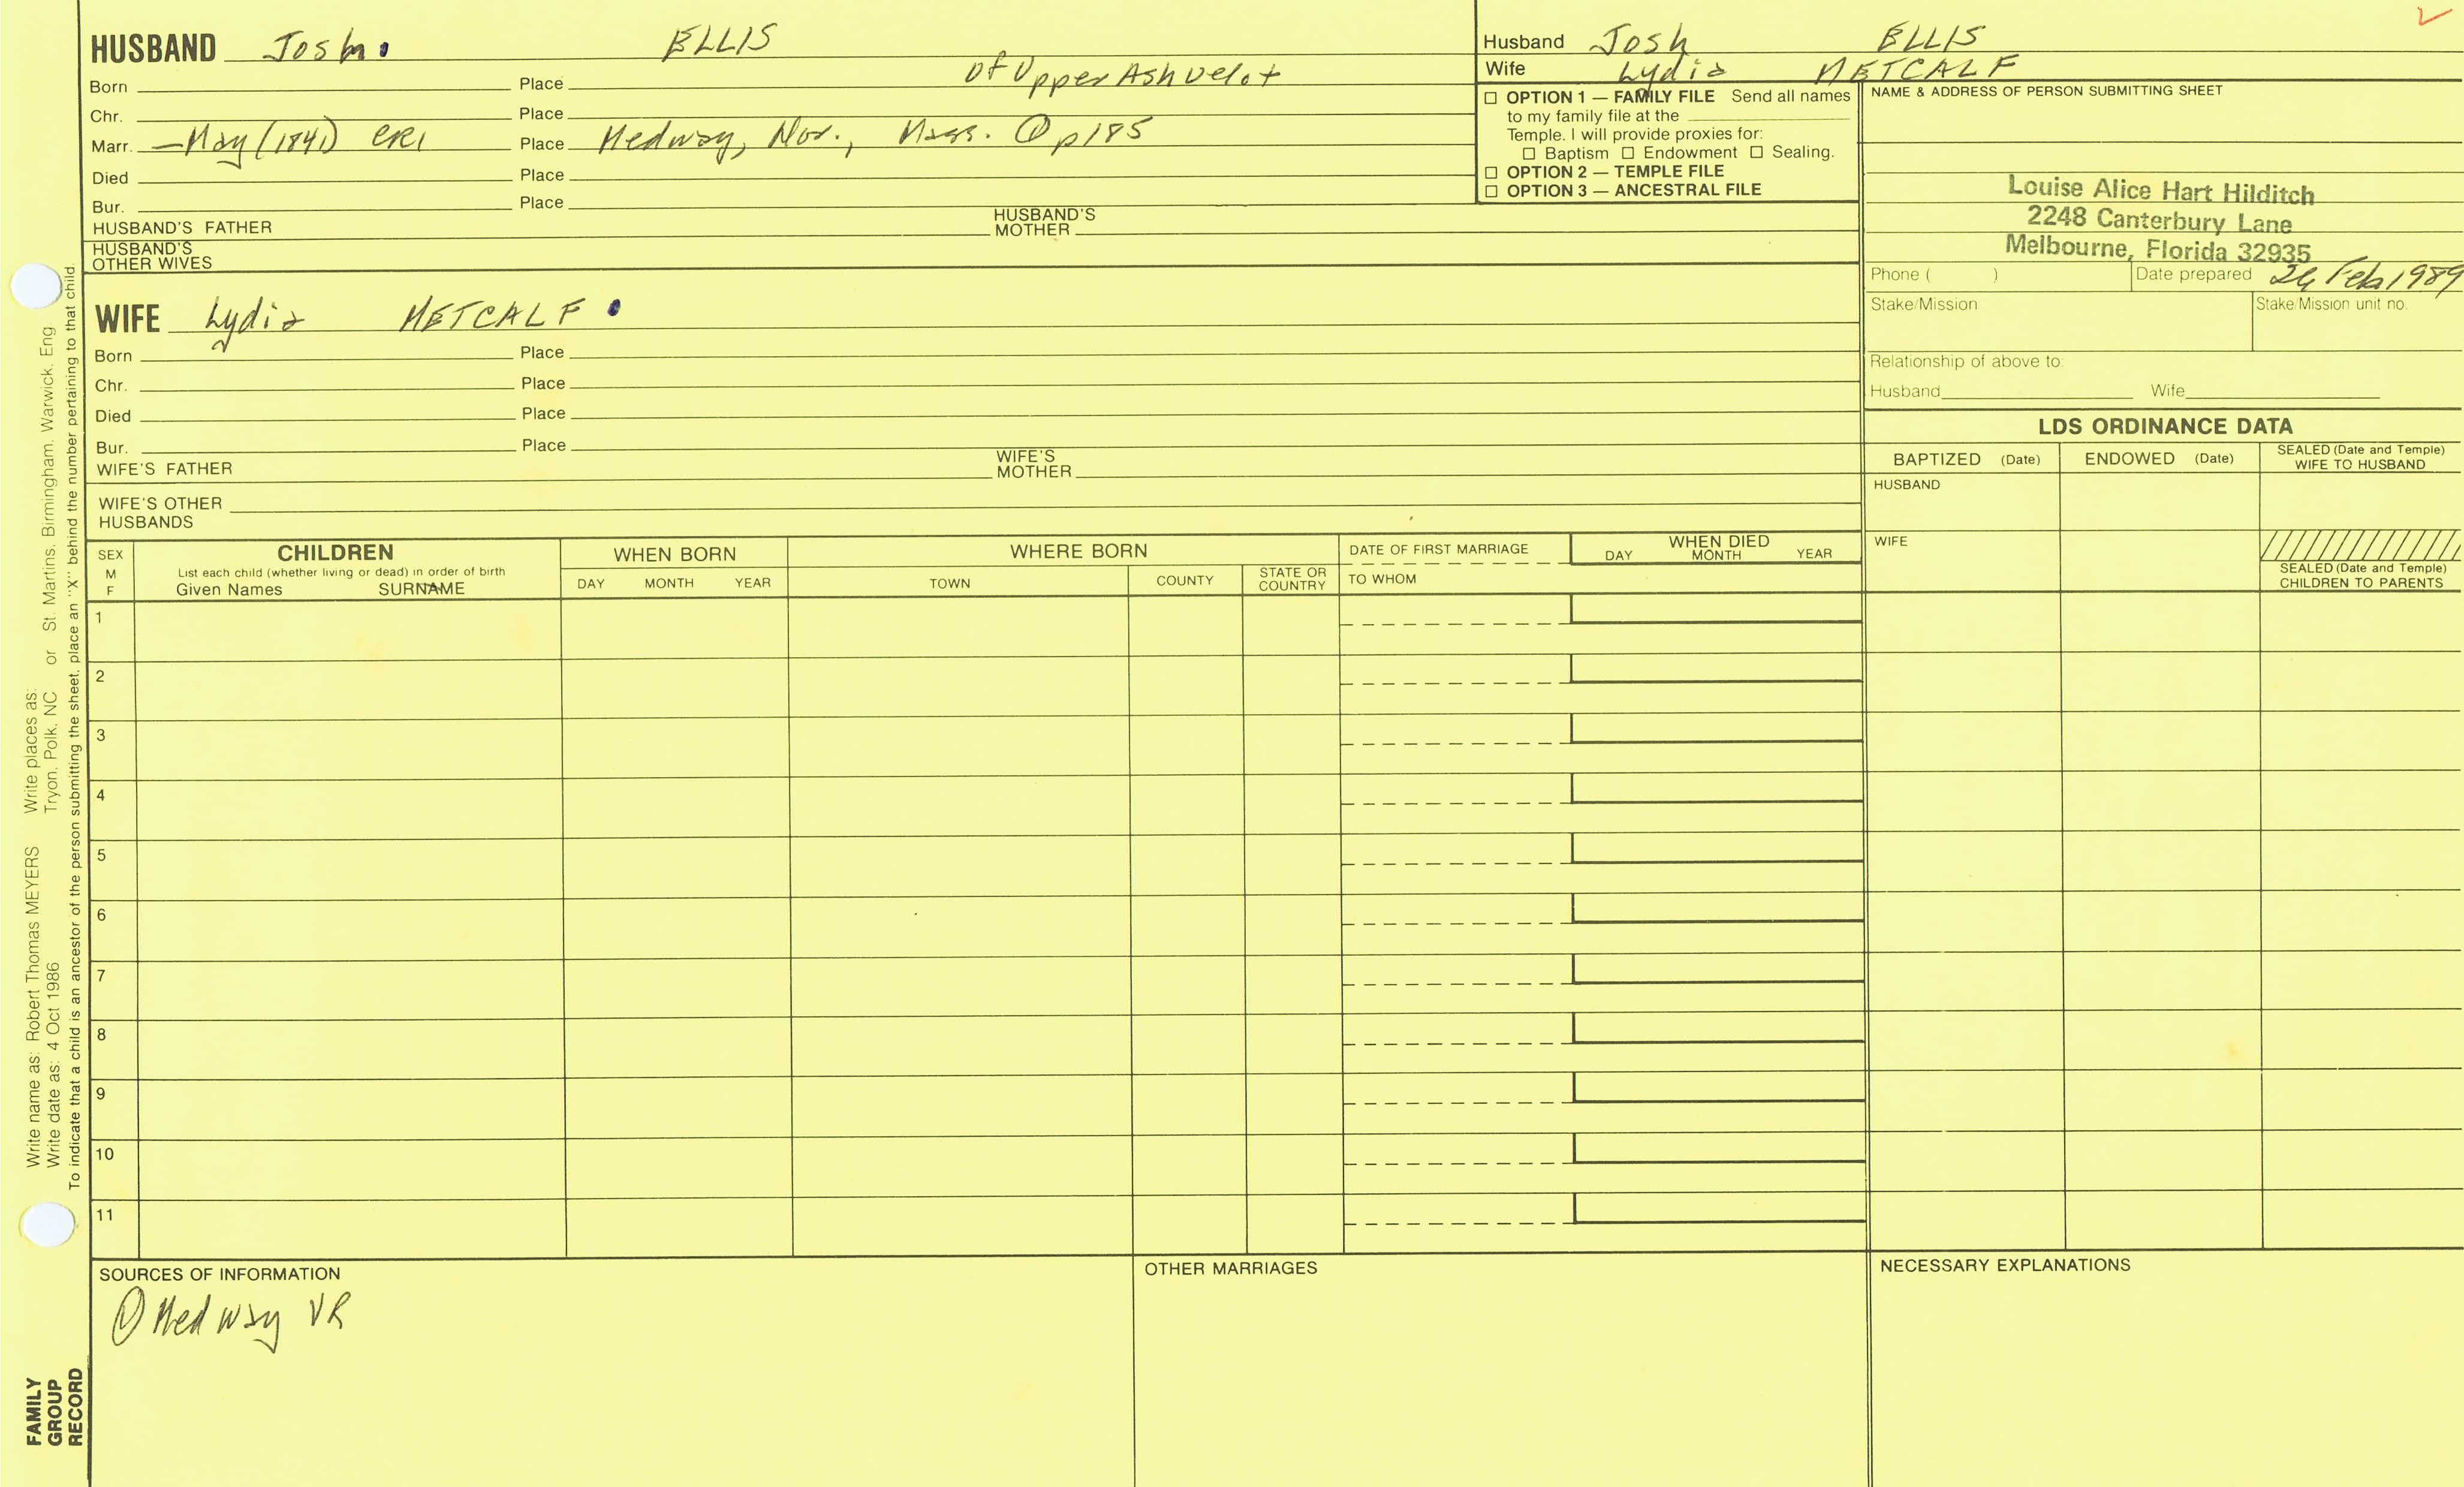 HUSBAND Josh. ELLIS of Upper Ashuelot
Born Place
Chr. Place
Marr. —May (1841) CR1 Place Medway, Nor., Mass. ① p185
Died Place
Bur. Place
HUSBAND'S FATHER HUSBAND'S MOTHER
HUSBAND'S OTHER WIVES
WIFE Lydia METCALF
Born Place
Chr. Place
Died Place
Bur. Place
WIFE'S FATHER WIFE'S MOTHER
WIFE'S OTHER HUSBANDS
Husband Josh ELLIS
Wife Lydia METCALF
☐ OPTION 1 — FAMILY FILE Send all names
to my family file at the
Temple. I will provide proxies for:
☐ Baptism ☐ Endowment ☐ Sealing.
☐ OPTION 2 — TEMPLE FILE
☐ OPTION 3 — ANCESTRAL FILE
NAME & ADDRESS OF PERSON SUBMITTING SHEET
Louise Alice Hart Hilditch
2248 Canterbury Lane
Melbourne, Florida 32935
Phone ( ) Date prepared 24 Feb 1989
Stake/Mission Stake/Mission unit no.
Relationship of above to:
Husband Wife
LDS ORDINANCE DATA
BAPTIZED (Date) ENDOWED (Date) SEALED (Date and Temple) WIFE TO HUSBAND
HUSBAND
WIFE
SEALED (Date and Temple)
CHILDREN TO PARENTS
SEX
M
F
CHILDREN
List each child (whether living or dead) in order of birth
Given Names SURNAME
WHEN BORN
DAY MONTH YEAR
WHERE BORN
TOWN COUNTY STATE OR COUNTRY
DATE OF FIRST MARRIAGE
TO WHOM
WHEN DIED
DAY MONTH YEAR
1
2
3
4
5
6
7
8
9
10
11
SOURCES OF INFORMATION
① Medway VR
OTHER MARRIAGES
NECESSARY EXPLANATIONS
Write name as: Robert Thomas MEYERS Write places as:
Write date as: 4 Oct 1986 Tryon, Polk, NC or St. Martins, Birmingham, Warwick, Eng
To indicate that a child is an ancestor of the person submitting the sheet, place an "X" behind the number pertaining to that child.
FAMILY
GROUP
RECORD